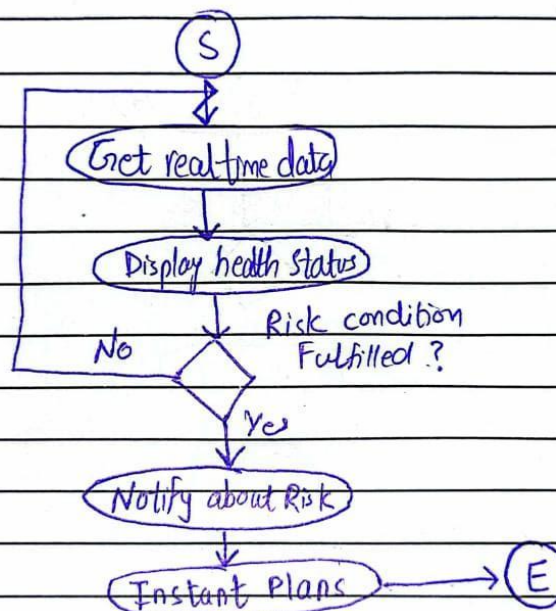 S
Get realtime data
Display health Status
Risk condition
Fulfilled ?
No
Yes
Notify about Risk
Instant Plans
E